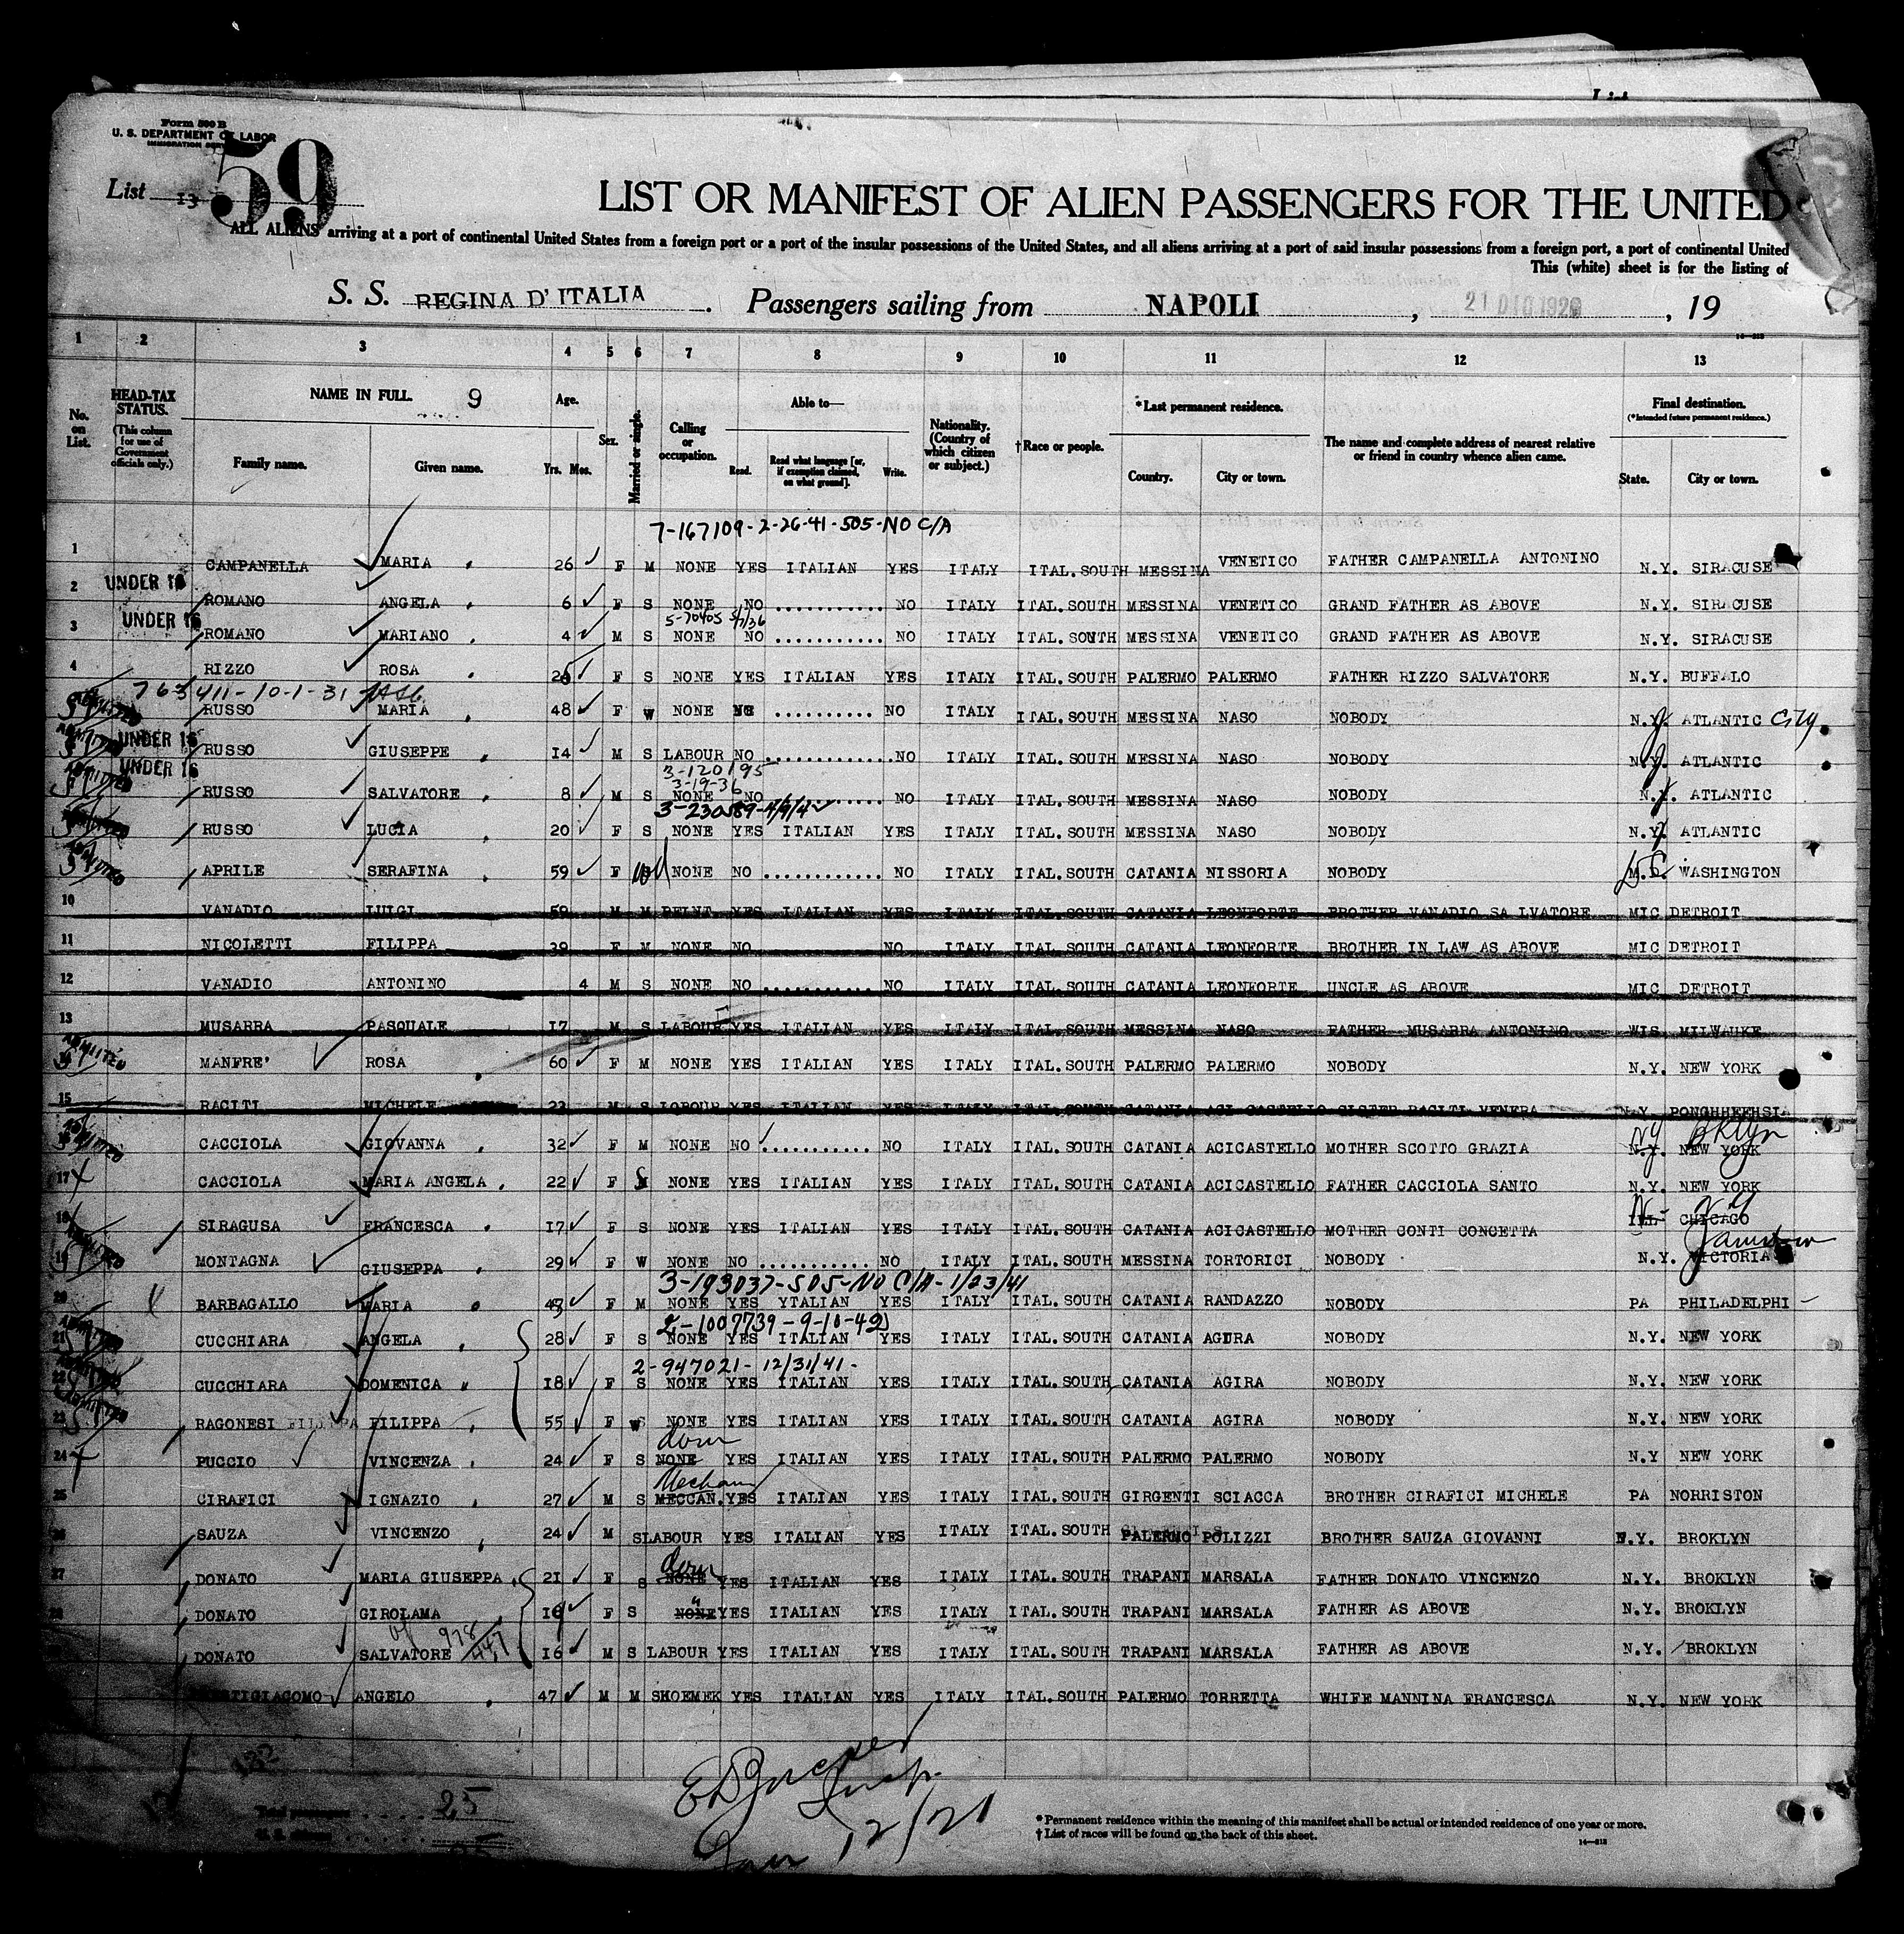 Form 500 B
U. S. DEPARTMENT OF LABOR
IMMIGRATION
List 13
59
LIST OR MANIFEST OF ALIEN PASSENGERS FOR THE UNITED
ALL ALIENS arriving at a port of continental United States from a foreign port or a port of the insular possessions of the United States, and all aliens arriving at a port of said insular possessions from a foreign port, a port of continental United
This (white) sheet is for the listing of
S. S. REGINA D'ITALIA. Passengers sailing from NAPOLI, 21 DIC 1920, 19
1 2 3 4 5 6 7 8 9 10 11 12 13
No. on List.
HEAD-TAX STATUS. (This column for use of Government officials only.)
NAME IN FULL. 9
Family name. Given name.
Age. Yrs. Mos.
Sex.
Married or single.
Calling or occupation.
Able to—
Read. Read what language [or, if exemption claimed, on what ground]. Write.
Nationality. (Country of which citizen or subject.)
†Race or people.
*Last permanent residence.
Country. City or town.
The name and complete address of nearest relative or friend in country whence alien came.
Final destination. (*Intended future permanent residence.)
State. City or town.
7-167109-2-26-41-505-NO C/A
1 CAMPANELLA MARIA 26 F M NONE YES ITALIAN YES ITALY ITAL.SOUTH MESSINA VENETICO FATHER CAMPANELLA ANTONINO N.Y. SIRACUSE
2 UNDER 16 ROMANO ANGELA 6 F S NONE NO ........... NO ITALY ITAL.SOUTH MESSINA VENETICO GRAND FATHER AS ABOVE N.Y. SIRACUSE
5-70405 5/7/36
3 UNDER 16 ROMANO MARIANO 4 M S NONE NO ........... NO ITALY ITAL.SOUTH MESSINA VENETICO GRAND FATHER AS ABOVE N.Y. SIRACUSE
4 RIZZO ROSA F S NONE YES ITALIAN YES ITALY ITAL.SOUTH PALERMO PALERMO FATHER RIZZO SALVATORE N.Y. BUFFALO
763411-10-1-31
ADMITTED RUSSO MARIA 48 F W NONE NO .......... NO ITALY ITAL.SOUTH MESSINA NASO NOBODY N.J. ATLANTIC City
ADMITTED UNDER 16 RUSSO GIUSEPPE 14 M S LABOUR NO ............. NO ITALY ITAL.SOUTH MESSINA NASO NOBODY N.J. ATLANTIC
3-120195
3-19-36
ADMITTED UNDER 16 RUSSO SALVATORE 8 M S NONE NO ........... NO ITALY ITAL.SOUTH MESSINA NASO NOBODY N.J. ATLANTIC
3-230589-4/9/42
ADMITTED RUSSO LUCIA 20 F S NONE YES ITALIAN YES ITALY ITAL.SOUTH MESSINA NASO NOBODY N.J. ATLANTIC
ADMITTED APRILE SERAFINA 59 F wd NONE NO ............ NO ITALY ITAL.SOUTH CATANIA NISSORIA NOBODY D.C. WASHINGTON
10 VANADIO LUIGI 59 M M YES ITALIAN YES ITALY ITAL.SOUTH CATANIA LEONFORTE BROTHER VANADIO SA LVATORE MIC DETROIT
11 NICOLETTI FILIPPA 39 F M NONE NO NO ITALY ITAL.SOUTH CATANIA LEONFORTE BROTHER IN LAW AS ABOVE MIC DETROIT
12 VANADIO ANTONINO 4 M S NONE NO ........... NO ITALY ITAL.SOUTH CATANIA LEONFORTE UNCLE AS ABOVE MIC DETROIT
13 MUSARRA PASQUALE 17 M S LABOUR YES ITALIAN YES ITALY ITAL.SOUTH MESSINA NASO FATHER MUSARRA ANTONINO WIS MILWAUKE
ADMITTED MANFRE' ROSA 60 F M NONE YES ITALIAN YES ITALY ITAL.SOUTH PALERMO PALERMO NOBODY N.Y. NEW YORK
15 RACITI MICHELE 23 M S LOBOUR YES ITALIAN YES ITALY ITAL.SOUTH CATANIA ACI CASTELLO SISTER RACITI VENERA N.Y.
NY Bklyn
16 ADMITTED CACCIOLA GIOVANNA 32 F M NONE NO ........... NO ITALY ITAL.SOUTH CATANIA ACICASTELLO MOTHER SCOTTO GRAZIA N.Y. NEW YORK
17 CACCIOLA MARIA ANGELA 22 F S NONE YES ITALIAN YES ITALY ITAL.SOUTH CATANIA ACICASTELLO FATHER CACCIOLA SANTO N.Y. NEW YORK
18 SIRAGUSA FRANCESCA 17 F S NONE YES ITALIAN YES ITALY ITAL.SOUTH CATANIA ACICASTELLO MOTHER CONTI CONCETTA ILL CHICAGO
19 ADMITTED MONTAGNA GIUSEPPA 29 F W NONE NO ........... NO ITALY ITAL.SOUTH MESSINA TORTORICI NOBODY N.Y. VICTORIA
3-193037-505-NO C/A-1/23/41
20 BARBAGALLO MARIA 43 F M NONE YES YTALIAN YES ITALY ITAL.SOUTH CATANIA RANDAZZO NOBODY PA PHILADELPHI
2-1007739-9-10-42
21 ADMITTED CUCCHIARA ANGELA 28 F S NONE YES ITALIAN YES ITALY ITAL.SOUTH CATANIA AGIRA NOBODY N.Y. NEW YORK
2-947021-12/31/41-
22 ADMITTED CUCCHIARA DOMENICA 18 F S NONE YES ITALIAN YES ITALY ITAL.SOUTH CATANIA AGIRA NOBODY N.Y. NEW YORK
23 ADMITTED RAGONESI FILIPPA FILIPPA 55 F W NONE YES ITALIAN YES ITALY ITAL.SOUTH CATANIA AGIRA NOBODY N.Y. NEW YORK
dom
24 PUCCIO VINCENZA 24 F S NONE YES ITALIAN YES ITALY ITAL.SOUTH PALERMO PALERMO NOBODY N.Y NEW YORK
Mechan
25 CIRAFICI IGNAZIO 27 M S MECCAN. YES ITALIAN YES ITALY ITAL.SOUTH GIRGENTI SCIACCA BROTHER CIRAFICI MICHELE PA NORRISTON
26 SAUZA VINCENZO 24 M S LABOUR YES ITALIAN YES ITALY ITAL.SOUTH PALERMO POLIZZI BROTHER SAUZA GIOVANNI N.Y. BROKLYN
dom
27 DONATO MARIA GIUSEPPA 21 F S NONE YES ITALIAN YES ITALY ITAL.SOUTH TRAPANI MARSALA FATHER DONATO VINCENZO N.Y. BROKLYN
28 DONATO GIROLAMA F S NONE YES ITALIAN YES ITALY ITAL.SOUTH TRAPANI MARSALA FATHER AS ABOVE N.Y. BROKLYN
978
447
DONATO SALVATORE 16 M S LABOUR YES ITALIAN YES ITALY ITAL.SOUTH TRAPANI MARSALA FATHER AS ABOVE N.Y. BROKLYN
ANGELO 47 M M SHOEMEK YES ITALIAN YES ITALY ITAL.SOUTH PALERMO TORRETTA WHIFE MANNINA FRANCESCA N.Y. NEW YORK
132
Total passengers .... 25
Insp.
Jan 12/21
*Permanent residence within the meaning of this manifest shall be actual or intended residence of one year or more.
†List of races will be found on the back of this sheet.